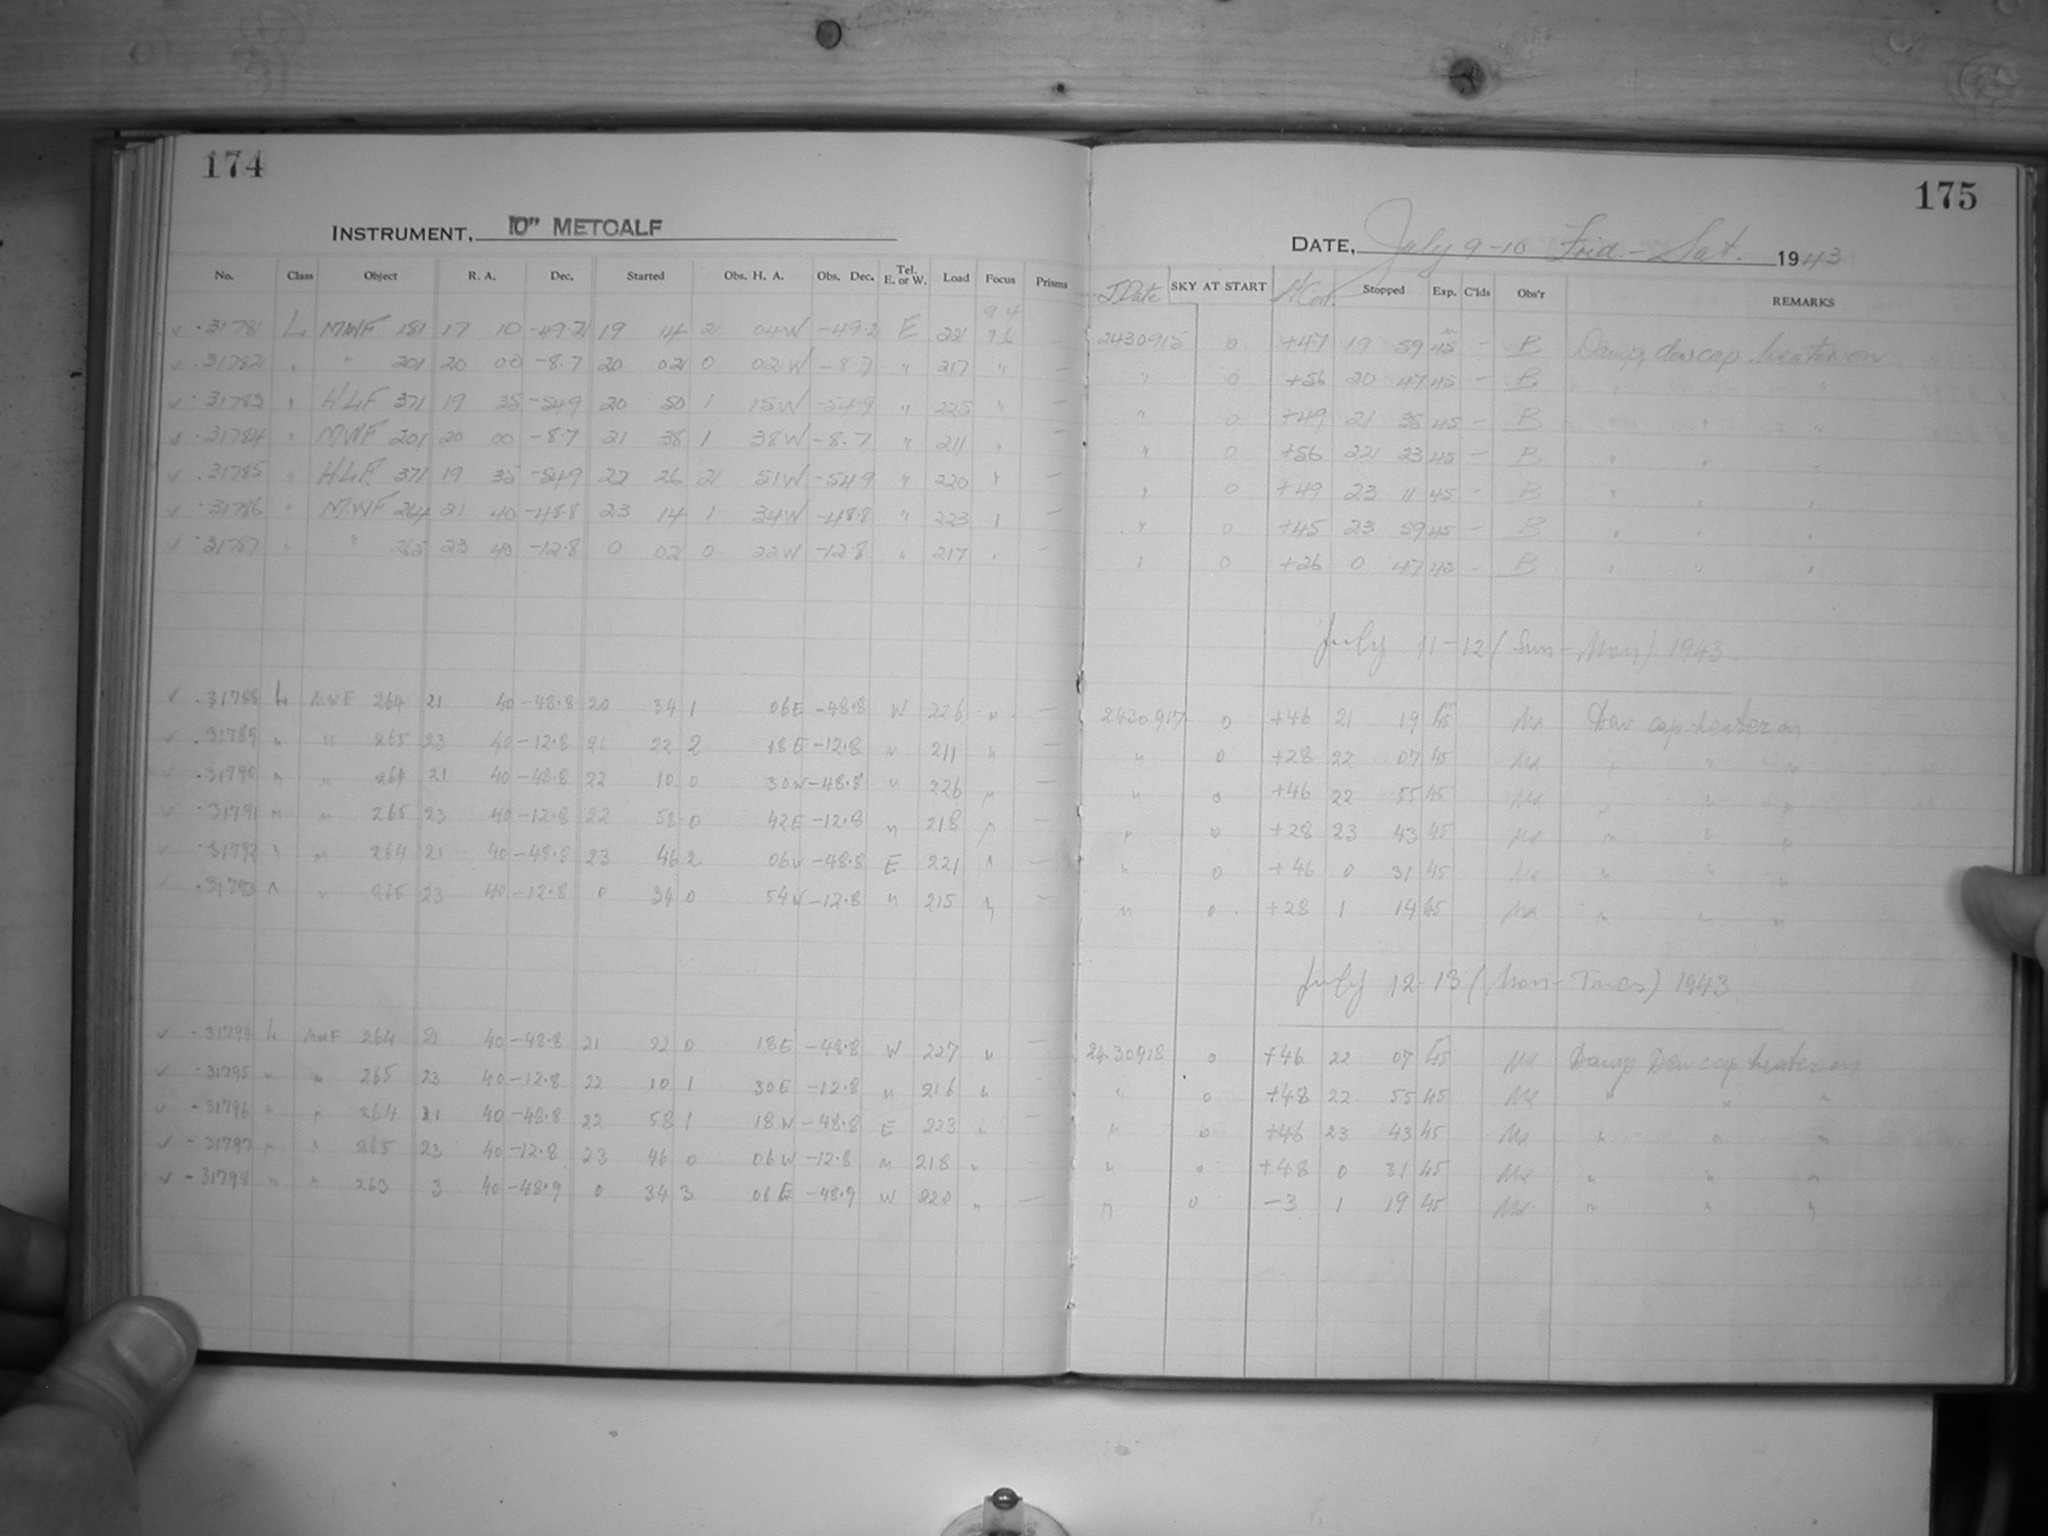 174
INSTRUMENT, 10" METCALF
No. Class Object R. A. Dec. Started Obs. H. A. Obs. Dec. Tel. E. or W. Load Focus Prisms
9.4
31781 L MWF 181 17 10 -49.2 19 14 2 04W -49.2 E 221 9.6 —
31782 " " 201 20 00 -8.7 20 02 0 02W -8.7 " 217 " —
31783 " HLF 371 19 35 -54.9 20 50 1 15W -54.9 " 225 " —
31784 " MWF 201 20 00 -8.7 21 38 1 38W -8.7 " 211 "
31785 " HLF 371 19 35 -54.9 22 26 2 51W -54.9 " 220 " —
31786 " MWF 264 21 40 -48.8 23 14 1 34W -48.8 " 223 " —
31787 " " 265 23 40 -12.8 0 02 0 22W -12.8 " 217 " —
31788 L MWF 264 21 40 -48.8 20 34 1 06E -48.8 W 226 " —
31789 " " 265 23 40 -12.8 21 22 2 18E -12.8 " 211 " —
31790 " " 264 21 40 -48.8 22 10 0 30W -48.8 " 226 " —
31791 " " 265 23 40 -12.8 22 58 0 42E -12.8 " 218 "
31792 " " 264 21 40 -48.8 23 46 2 06W -48.8 E 221 " —
31793 " " 265 23 40 -12.8 0 34 0 54W -12.8 " 215 " —
31794 L MWF 264 21 40 -48.8 21 22 0 18E -48.8 W 227 " —
31795 " " 265 23 40 -12.8 22 10 1 30E -12.8 " 216 " —
31796 " " 264 21 40 -48.8 22 58 1 18W -48.8 E 223 " —
31797 " " 265 23 40 -12.8 23 46 0 06W -12.8 " 218 " —
31798 " " 263 3 40 -48.9 0 34 3 06E -48.9 W 220 " —
175
DATE, July 9-10 Frid.-Sat. 1943
J Date SKY AT START Stopped Exp. C'lds Obs'r REMARKS
2430915 0 +47 19 59 45 — B Damp, dew cap heater on
" 0 +56 20 47 45 — B " " "
" 0 +49 21 35 45 — B " " "
" 0 +56 22 23 45 — B " " "
" 0 +49 23 11 45 — B " " "
" 0 +45 23 59 45 — B " " "
" 0 +26 0 47 45 — B " " "
July 11-12 (Sun-Mon) 1943.
2430917 0 +46 21 19 45 Dew cap heater on
" 0 +28 22 07 45 " " "
" 0 +46 22 55 45 " " "
" 0 +28 23 43 45 " " "
" 0 +46 0 31 45 " " "
" 0 +28 1 14 45 " " "
July 12-13 (Mon-Tues) 1943
2430918 0 +46 22 07 45 Damp Dew cap heater on
" 0 +48 22 55 45 " " "
" 0 +46 23 43 45 " " "
" 0 +48 0 31 45 " " "
" 0 -3 1 19 45 " " "